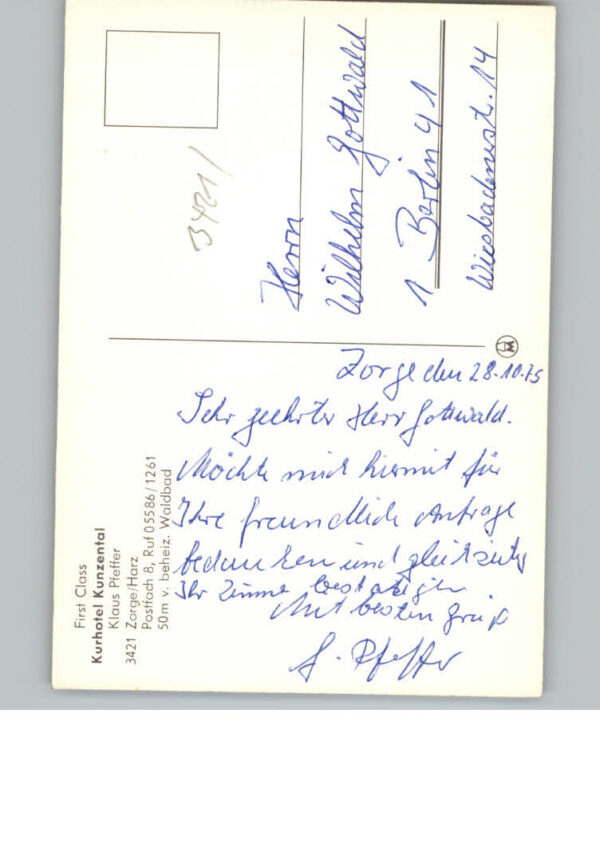 First Class
Kurhotel Kunzental
Klaus Pfeffer
3421 Zorge/Harz
Postfach 8, Ruf 05586/1261
50m v. beheiz. Waldbad
Zorge den 28.10.75
Sehr geehrter Herr Gottwald.
Möchte mich hiermit für
Ihre freundliche Anfrage
bedanken und gleichzeitig
Ihr Zimmer bestätigen
Mit besten Gruß
Pfeffer
3421/
Herrn
Wilhelm Gottwald
1 Berlin 41
Wiesbadenerst. 14